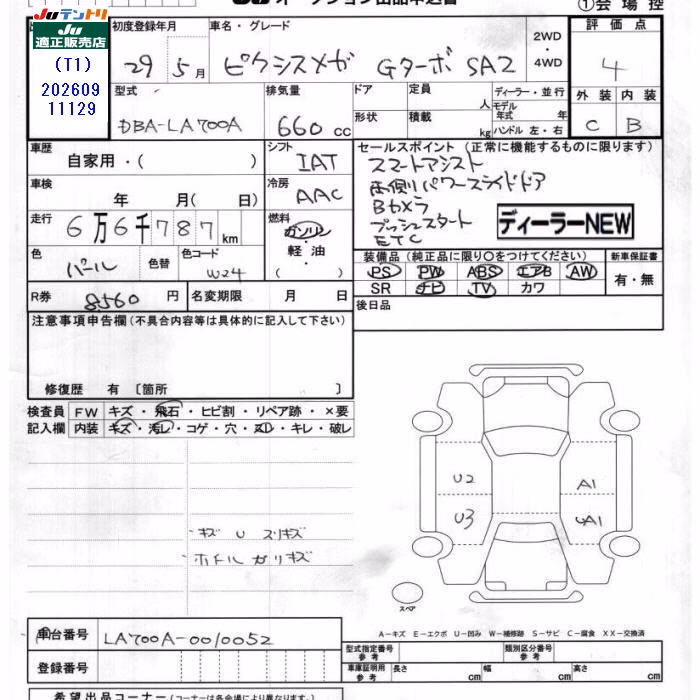 Juテントリ
JU 適正販売店
(T1)
202609
11129
JU オークション出品申込書
①会場控
初度登録年月
29 5月
車名・グレード
ピクシスメガ Gターボ SA2
2WD
・
4WD
評価点
4
外装 内装
C B
型式
DBA-LA700A
排気量
660 cc
ドア
形状
定員 人
積載 kg
ディーラー・並行
モデル年式 年
ハンドル 左・右
車歴
自家用・( )
シフト
IAT
車検
年 月( 日)
冷房
AAC
走行
6万6千787km
燃料
ガソリン
・
軽油
( )
色
パール
色替
色コード
W24
R券 8560 円
名変期限 月 日
セールスポイント (正常に機能するものに限ります)
スマートアシスト
両側パワースライドドア
Bカメラ
プッシュスタート
ETC
ディーラーNEW
装備品 (純正品に限り○をつけてください)
新車保証書
PS PW ABS エアB AW
SR ナビ TV カワ
有・無
後日品
注意事項申告欄(不具合内容等は具体的に記入して下さい)
修復歴 有 〔箇所 〕
検査員
記入欄
FW キズ・飛石・ヒビ割・リペア跡・×要
内装 キズ・汚レ・コゲ・穴・ヌレ・キレ・破レ
キズ U スリキズ
ホイール ガリキズ
U2
U3
A1
UA1
スペア
A-キズ E-エクボ U-凹み W-補修跡 S-サビ C-腐食 XX-交換済
車台番号 LA700A-0010052
登録番号
型式指定番号
参考
類別区分番号
参考
車庫証明用
参考
長さ cm
幅 cm
高さ cm
希望出品コーナー (コーナーは各会場により異なります。)